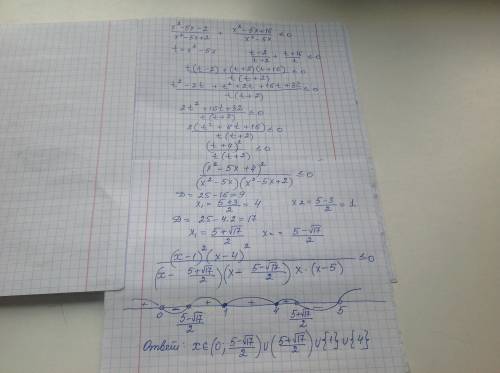 x²-5x-2 / x²-5x+2 + x²-5x+16 / x²-5x ≤ 0
t = x²-5x   t-2 / t+2 + t+16 / t ≤ 0
t(t-2)+(t+2)(t+16) / t(t+2) ≤ 0
t²-2t+t²+2t+16t+32 / t(t+2) ≤ 0
2t²+16t+32 / t(t+2) ≤ 0
2(t²+8t+16) / t(t+2) ≤ 0
(t+4)² / t(t+2) ≤ 0
(x²-5x+4)² / (x²-5x)(x²-5x+2) ≤ 0
D = 25-16 = 9
x₁ = 5+3 / 2 = 4   x2 = 5-3 / 2 = 1
D = 25-4·2 = 17
x₁ = 5+√17 / 2   x₂ = 5-√17 / 2
(x-1)²(x-4)² / (x- 5+√17 / 2)(x- 5-√17 / 2) x·(x-5) ≤ 0
+ - + + - +
0 5-√17 / 2 1 4 5+√17 / 2 5
Ответ: x∈(0; 5-√17 / 2)∪(5+√17 / 2)∪{1}∪{4}